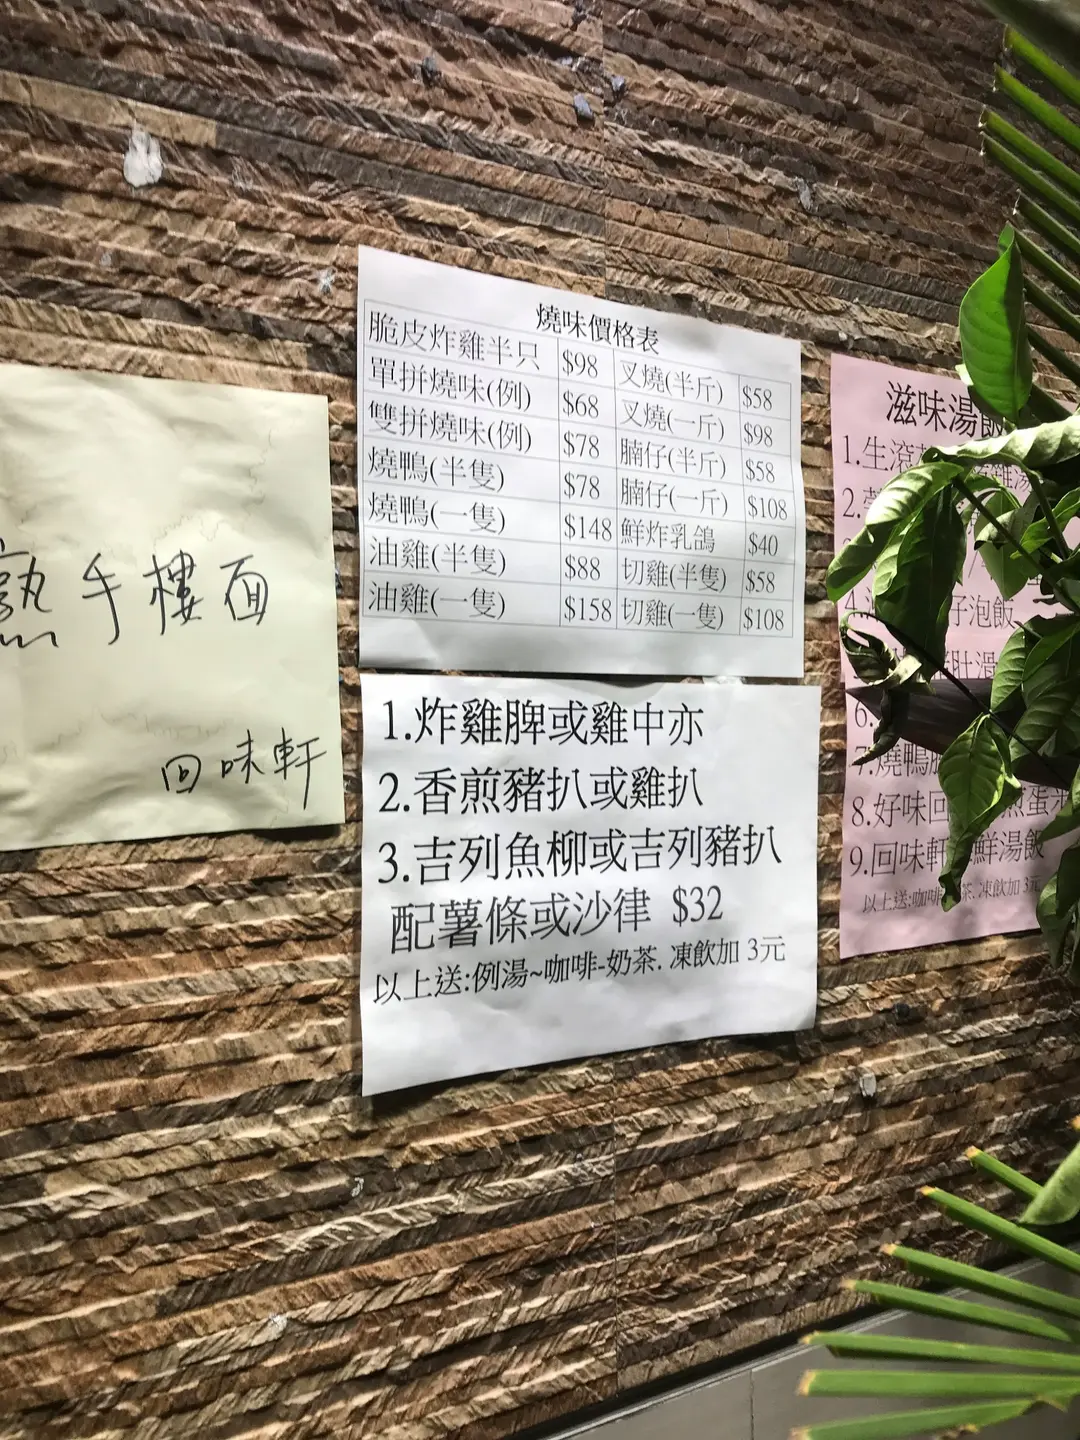 熟手樓面
回味軒
燒味價格表
脆皮炸雞半只 $98 叉燒(半斤) $58
單拼燒味(例) $68 叉燒(一斤) $98
雙拼燒味(例) $78 腩仔(半斤) $58
燒鴨(半隻) $78 腩仔(一斤) $108
燒鴨(一隻) $148 鮮炸乳鴿 $40
油雞(半隻) $88 切雞(半隻) $58
油雞(一隻) $158 切雞(一隻) $108
1.炸雞脾或雞中亦
2.香煎豬扒或雞扒
3.吉列魚柳或吉列豬扒
配薯條或沙律 $32
以上送:例湯~咖啡-奶茶. 凍飲加 3元
滋味湯飯
1.生滾
2.
4. 仔泡飯
6.
7.燒鴨
8.好味回 煎蛋
9.回味軒 鮮湯飯
以上送:咖啡 茶. 凍飲加 3元